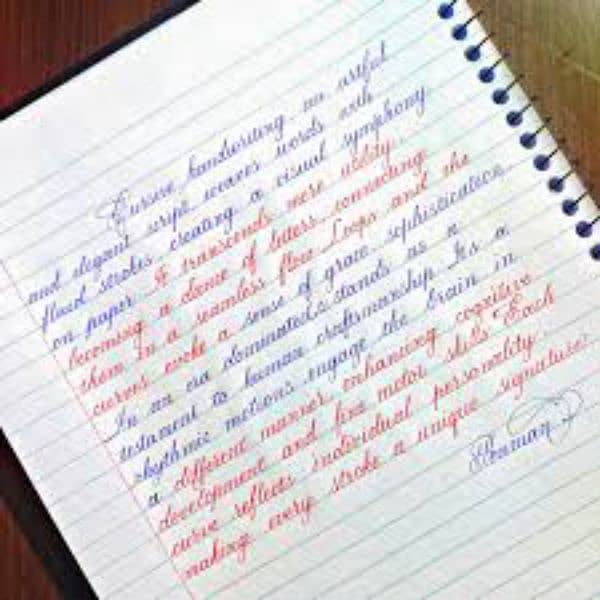 Cursive handwriting an artful
and elegant script weaves words with
fluid strokes, creating a visual symphony
on paper. It transcends mere utility
becoming a dance of letters connecting
them in a seamless flow. Loops and the
curves evoke a sense of grace, sophistication
In an era dominated, stands as a
testament to human craftsmanship. Its a
rhythmic motions engage the brain in
a different manner, enhancing cognitive
development and fine motor skills. Each
curve reflects individual personality
making every stroke a unique signature.